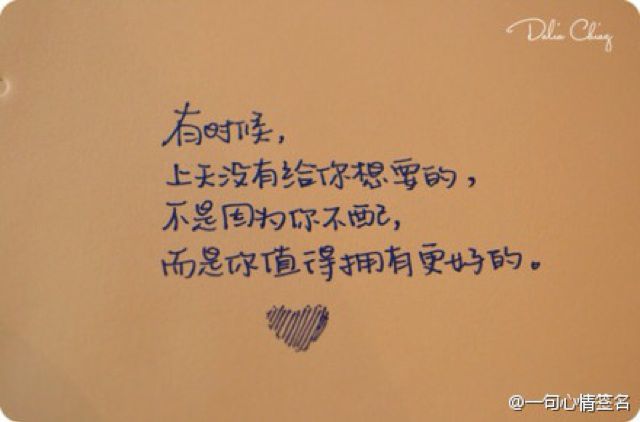 Dalin Ching
有时候,
上天没有给你想要的,
不是因为你不配,
而是你值得拥有更好的。
@一句心情签名